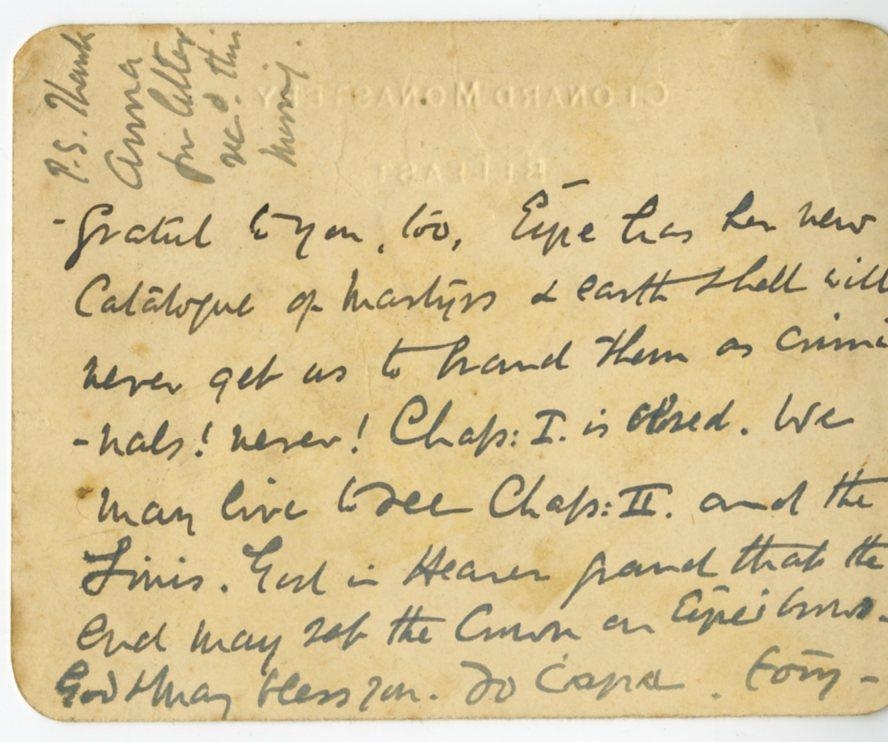 P.S. Thank
Anna
for letter
rec'd this
morning.
CLONARD MONASTERY
BELFAST
-grateful to you, too, Éire has her new
Catalogue of Martyrs & earth & hell will
never get us to brand them as crimi
-nals! never! Chap: I. is closed. We
may live to see Chap: II. and the
Finis. God in Heaven grant that the
end may set the Crown on Éire's brow.
God & Mary bless you. Do Cara.